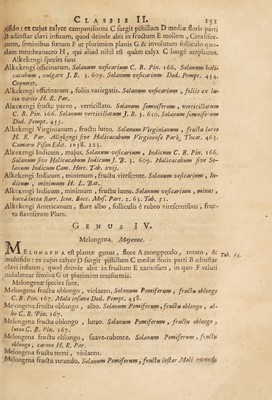 CLASSIS II. 151
diffido : ex cujus calyce campaniformi C surgit pistillum D mediæ floris parti
B adinstar clavi infixum, quod deinde abit in fructum E mollem, Cerasiformem, seminibus
fœtum F ut plurimùm planis G & involutum folliculo quodam
membranaceo H, qui aliud nihil est quàm calyx C longè ampliatus.
Alkekengi species sunt
Alkekengi officinarum. Solanum vesicarium C. B. Pin. 166. Solanum halicacabum,
vulgare J. B. 3. 609. Solanum vesicarium Dod. Pempt. 454.
Coqueret.
Alkekengi officinarum, foliis variegatis. Solanum vesicarium, foliis ex luteo
variis H. R. Par.
Alkekengi fructu parvo, verticillato. Solanum somniferum, verticillatum
C. B. Pin. 166. Solanum verticillatum J. B. 3. 610. Solanum somniferum
Dod. Pempt. 455.
Alkekengi Virginianum, fructu luteo. Solanum Virginianum, fructu luteo
H. R. Par.
Alkekengi Indicum, majus. Solanum vesicarium, Indicum C. B. Pin. 166.
Solanum sive Halicacabum Indicum J. B. 3. 609. Halicacabum sive Solanum
Indicum Cam. Hort. Tab. xvij.
Alkekengi Indicum, minimum, fructu virescente. Solanum vesicarium, Indicum,
minimum H. L. Bat.
Alkekengi Indicum, minimum, fructu luteo.
Alkekengi Americanum, flore albo, folliculis è rubro virescentibus, fructu
flavescente Plum.
GENUS IV.
Melongena. Mayenne.
MELONGENA est plantæ genus, flore A monopetalo, rotato, & Tab. 65.
multifido : ex cujus calyce D surgit pistillum C mediæ floris parti B adinstar
clavi infixum, quod deinde abit in fructum E carnosum, in quo F veluti
nidulantur semina G ut plurimùm reniformia.
Melongenæ species sunt.
Melongena fructu oblongo, violaceo. Solanum Pomiferum, fructu oblongo
C. B. Pin. 167. Mala insana Dod. Pempt. 458.
Melongena fructu oblongo, albo. Solanum Pomiferum, fructu oblongo, albo
C. B. Pin. 167.
Melongena fructu oblongo, luteo. Solanum Pomiferum, fructu oblongo,
luteo C. B. Pin. 167.
Melongena fructu oblongo, suave-rubente. Solanum Pomiferum, fructu
oblongo, carneo H. R. Par.
Melongena fructu tereti, violaceo.
Melongena fructu rotundo. Solanum Pomiferum, fructu instar Mali rotundo